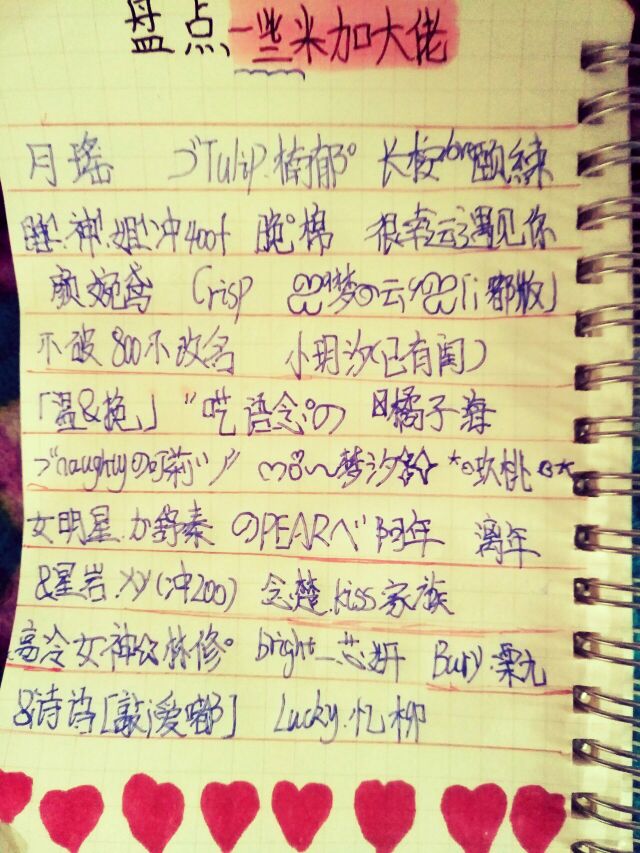 盘点一些米加大佬
月瑶 ゴTulip.楠郁° 长桉 颐練
睡神姐冲400f 脆°棉 很幸云遇见你
颜婉鸢 Crisp 梦の云
不破800不改名 小玥汐(已有闺)
「温&挽」 语念°の 橘子海
ゴnaughtyの可莉 梦汐 *o玖桃
女明星.か舒素 のPEARべ 阿年 漓年
&星岩.xy(冲200) 念楚.kiss家族
高冷女神公林修° bright_芯妍 Bury.栗九
&诗诗[敲i爱嘟] Lucky.忆柳